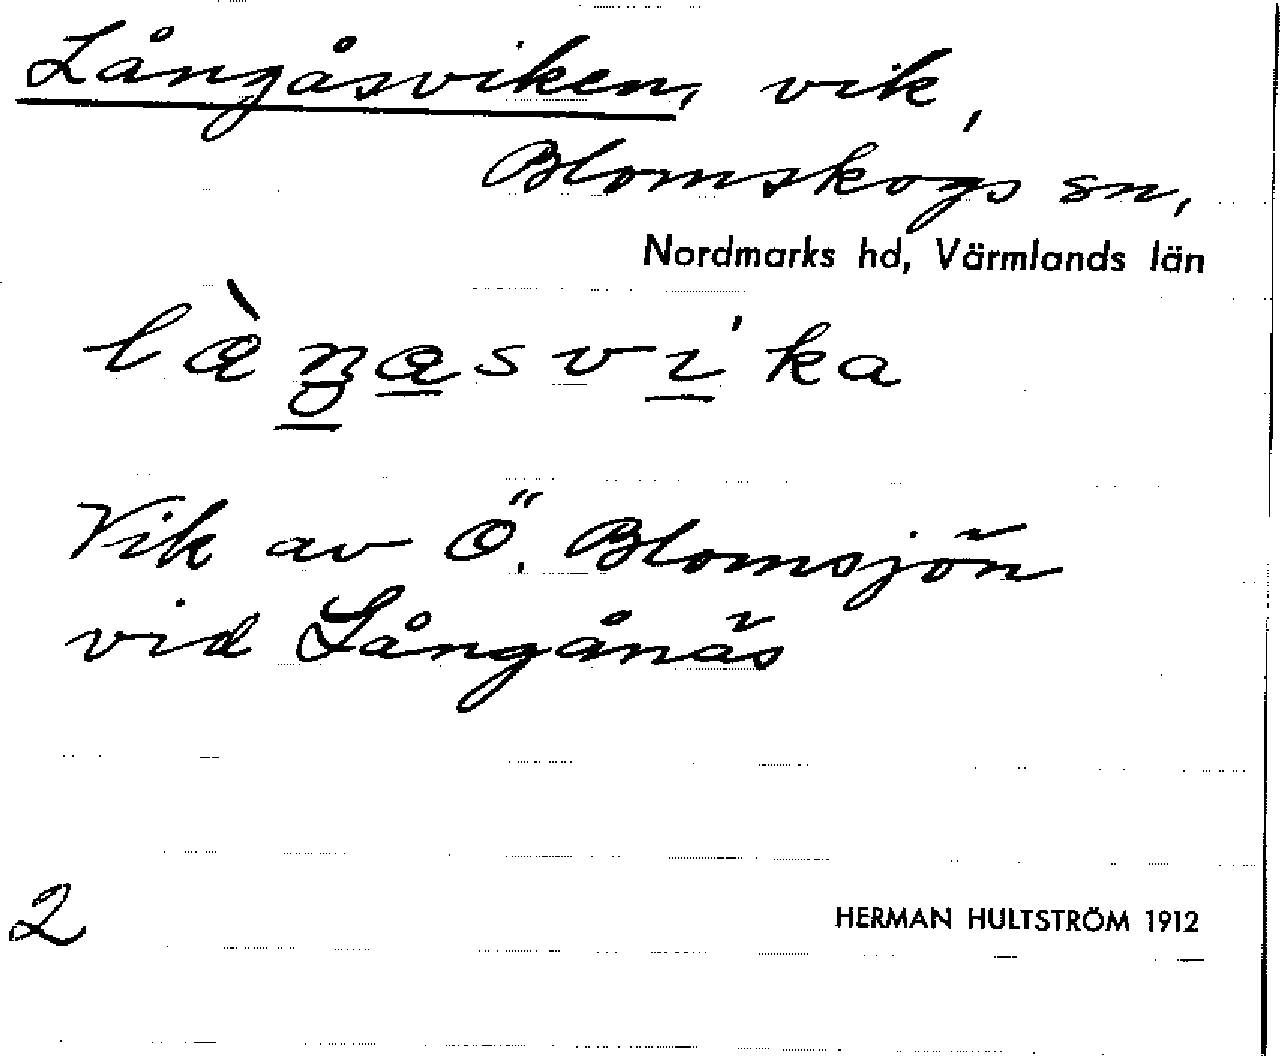 Långåsviken, vik,
Blomskogs sn,
Nordmarks hd, Värmlands län
làŋasvi'ka
Vik av Ö. Blomsjön
vid Långånäs
2
HERMAN HULTSTRÖM 1912